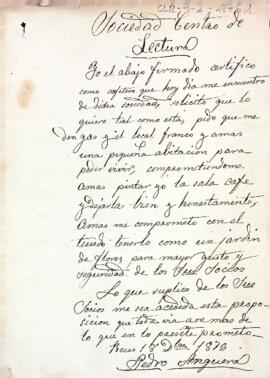 Sociedad Centro de
Lectura
Yo el abajo firmado certifico
como cafetero que hoy dia me encuentro
de dicha sociedad, solicitó que lo
quiero tal como está, pido que me
den gas y el local franco y amas
una pequeña abitacion para
poder vivir, comprometiendome
amas pintar yo la sala cafe
y dejarla bien y honestamente,
Amas me comprometo con el
tenerlo como un jardin
de flores para mayor gusto y
seguridad de los Sres Socios
Lo que suplico de los Sres
Socios me sea accedida esta propo-
sicion que toda ira are mas de
lo que en la presente prometo
Reus 16 Dbre 1876
Pedro Anguera